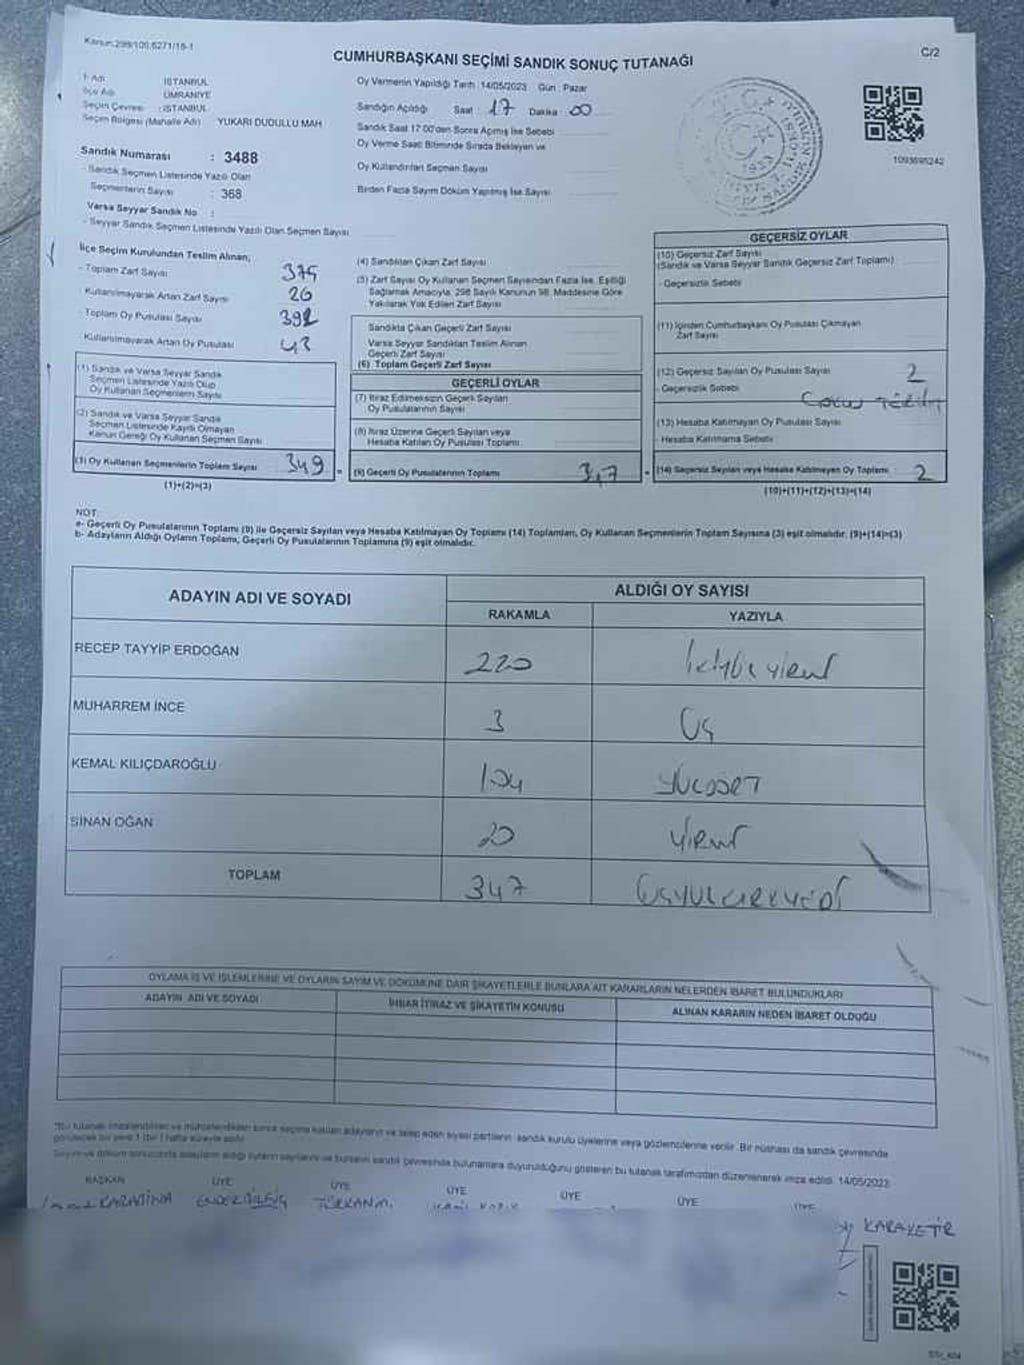 Kanun:298/106,6271/18-1
C/2
CUMHURBAŞKANI SEÇİMİ SANDIK SONUÇ TUTANAĞI
İl Adı : İSTANBUL
İlçe Adı : ÜMRANİYE
Seçim Çevresi : İSTANBUL
Seçim Bölgesi (Mahalle Adı) YUKARI DUDULLU MAH
Sandık Numarası : 3488
- Sandık Seçmen Listesinde Yazılı Olan
Seçmenlerin Sayısı : 368
Varsa Seyyar Sandık No :
- Seyyar Sandık Seçmen Listesinde Yazılı Olan Seçmen Sayısı
Oy Vermenin Yapıldığı Tarih : 14/05/2023 Gün : Pazar
Sandığın Açıldığı Saat : 17 Dakika : 00
Sandık Saat 17:00'den Sonra Açılmış İse Sebebi
Oy Verme Saati Bitiminde Sırada Bekleyen ve
Oy Kullandırılan Seçmen Sayısı
Birden Fazla Sayım Döküm Yapılmış İse Sayısı
1093695242
İlçe Seçim Kurulundan Teslim Alınan;
- Toplam Zarf Sayısı 375
- Kullanılmayarak Artan Zarf Sayısı 26
- Toplam Oy Pusulası Sayısı 392
- Kullanılmayarak Artan Oy Pusulası 43
(1) Sandık ve Varsa Seyyar Sandık
Seçmen Listesinde Yazılı Olup
Oy Kullanan Seçmenlerin Sayısı
(2) Sandık ve Varsa Seyyar Sandık
Seçmen Listesinde Kayıtlı Olmayan
Kanun Gereği Oy Kullanan Seçmen Sayısı
(3) Oy Kullanan Seçmenlerin Toplam Sayısı 349
(1)+(2)=(3)
(4) Sandıktan Çıkan Zarf Sayısı
(5) Zarf Sayısı Oy Kullanan Seçmen Sayısından Fazla İse, Eşitliği
Sağlamak Amacıyla, 298 Sayılı Kanunun 98. Maddesine Göre
Yakılarak Yok Edilen Zarf Sayısı
Sandıkta Çıkan Geçerli Zarf Sayısı
Varsa Seyyar Sandıktan Teslim Alınan
Geçerli Zarf Sayısı
(6) Toplam Geçerli Zarf Sayısı
GEÇERLİ OYLAR
(7) İtiraz Edilmeksizin Geçerli Sayılan
Oy Pusulalarının Sayısı
(8) İtiraz Üzerine Geçerli Sayılan veya
Hesaba Katılan Oy Pusulası Toplamı
(9) Geçerli Oy Pusulalarının Toplamı
GEÇERSİZ OYLAR
(10) Geçersiz Zarf Sayısı
(Sandık ve Varsa Seyyar Sandık Geçersiz Zarf Toplamı)
- Geçersizlik Sebebi
(11) İçinden Cumhurbaşkanı Oy Pusulası Çıkmayan
Zarf Sayısı
(12) Geçersiz Sayılan Oy Pusulası Sayısı 2
- Geçersizlik Sebebi
(13) Hesaba Katılmayan Oy Pusulası Sayısı
- Hesaba Katılmama Sebebi
(14) Geçersiz Sayılan veya Hesaba Katılmayan Oy Toplamı 2
(10)+(11)+(12)+(13)=(14)
NOT:
a- Geçerli Oy Pusulalarının Toplamı (9) ile Geçersiz Sayılan veya Hesaba Katılmayan Oy Toplamı (14) Toplamları, Oy Kullanan Seçmenlerin Toplam Sayısına (3) eşit olmalıdır. (9)+(14)=(3)
b- Adayların Aldığı Oyların Toplamı, Geçerli Oy Pusulalarının Toplamına (9) eşit olmalıdır.
ADAYIN ADI VE SOYADI
ALDIĞI OY SAYISI
RAKAMLA YAZIYLA
RECEP TAYYİP ERDOĞAN 220 ikiyüz yirmi
MUHARREM İNCE 3 Üç
KEMAL KILIÇDAROĞLU 104 YÜZDÖRT
SİNAN OĞAN 20 Yirmi
TOPLAM 347 üçyüzkırkyedi
OYLAMA İŞ VE İŞLEMLERİNE VE OYLARIN SAYIM VE DÖKÜMÜNE DAİR ŞİKAYETLERLE BUNLARA AİT KARARLARIN NELERDEN İBARET BULUNDUKLARI
ADAYIN ADI VE SOYADI İHBAR İTİRAZ VE ŞİKAYETİN KONUSU ALINAN KARARIN NEDEN İBARET OLDUĞU
*Bu tutanak imzalandıktan ve mühürlendikten sonra seçime katılan adayların ve talep eden siyasi partilerin sandık kurulu üyelerine veya gözlemcilerine verilir. Bir nüshası da sandık çevresinde
görülecek bir yere 1 (bir) hafta süreyle asılır.
Sayım ve döküm sonucunda adayların aldığı oyların sayılarını ve bunların sandık çevresinde bulunanlara duyurulduğunu gösteren bu tutanak tarafımızdan düzenlenerek imza edildi. 14/05/2023
BAŞKAN ÜYE ÜYE ÜYE ÜYE ÜYE ÜYE
KARADİNA ENDER BİLGİÇ
KARAKETİR